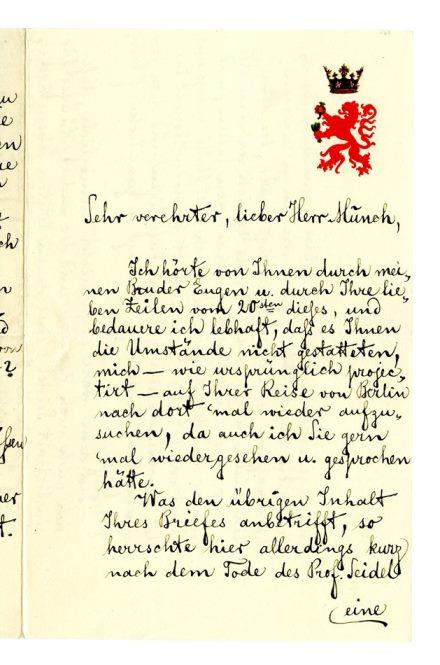 Sehr verehrter, lieber Herr Munch,
Ich hörte von Ihnen durch mei-
nen Bruder Eugen u. durch Ihre lie-
ben Zeilen vom 20sten dieses, und
bedauere ich lebhaft, daß es Ihnen
die Umstände nicht gestatteten,
mich — wie ursprünglich projec-
tirt — auf Ihrer Reise von Berlin
nach dort 'mal wieder aufzu-
suchen, da auch ich Sie gern
'mal wiedergesehen u. gesprochen
hätte.
Was den übrigen Inhalt
Ihres Briefes anbetrifft, so
herrschte hier allerdings kurz
nach dem Tode des Prof. Seidel
eine